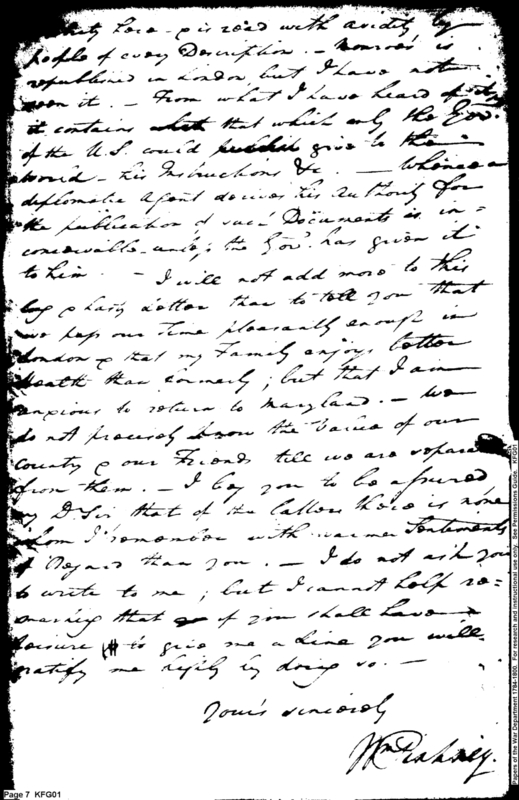 here & is read with avidity by
people of every Description. — Monroe's is
republished in London but I have not
seen it. — From what I have heard of it
it contains that which only the Gov.
of the U.S. could give to the
world — his Instructions &c. — Whence a
diplomatic Agent derives his Authority for
the publication of such Documents is in=
conceivable unless the Gov.t has given it
to him. — I will not add more to this
long & hasty Letter than to tell you that
we pass our Time pleasantly enough in
London & that my Family enjoys better
Health than formerly; but that I am
anxious to return to Maryland. — We
do not precisely know the Value of our
Country & our Friends till we are separated
from them. — I beg you to be assured
my Dr Sir that of the latter there is none
whom I remember with warmer Sentiments
of Regard than you. — I do not ask you
to write to me; but I cannot help re=
marking that if you shall have
leisure to give me a Line you will
gratify me highly by doing so. —
Yours sincerely
Wm Pinkney.
Page 7 KFG01
Papers of the War Department 1784-1800. For research and instructional use only. See Permissions Guide. KFG01